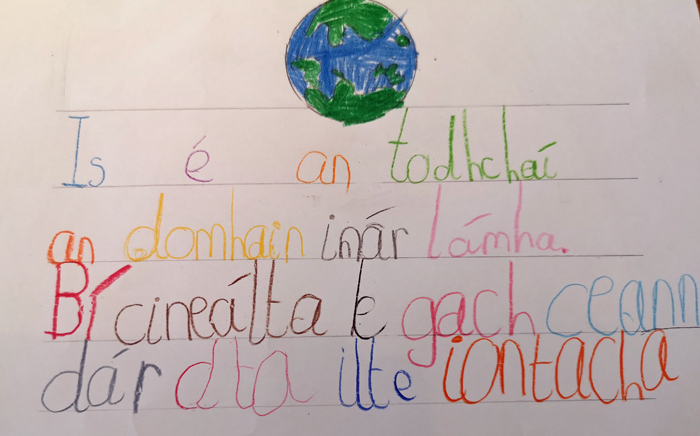 Is é an todhchaí
an domhain inár lámha.
Bí cineálta le gach ceann
dár dta ilte iontacha